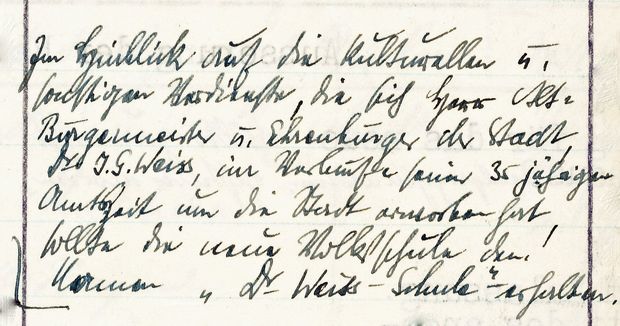 Im Hinblick auf die kulturellen u.
sonstigen Verdienste, die sich Herr Alt-
Bürgermeister u. Ehrenbürger der Stadt,
Dr J. G. Weiss, im Verlaufe seiner 35 jährigen
Amtszeit um die Stadt erworben hat,
sollte die neue Volksschule den
Namen „Dr Weiss-Schule" erhalten.